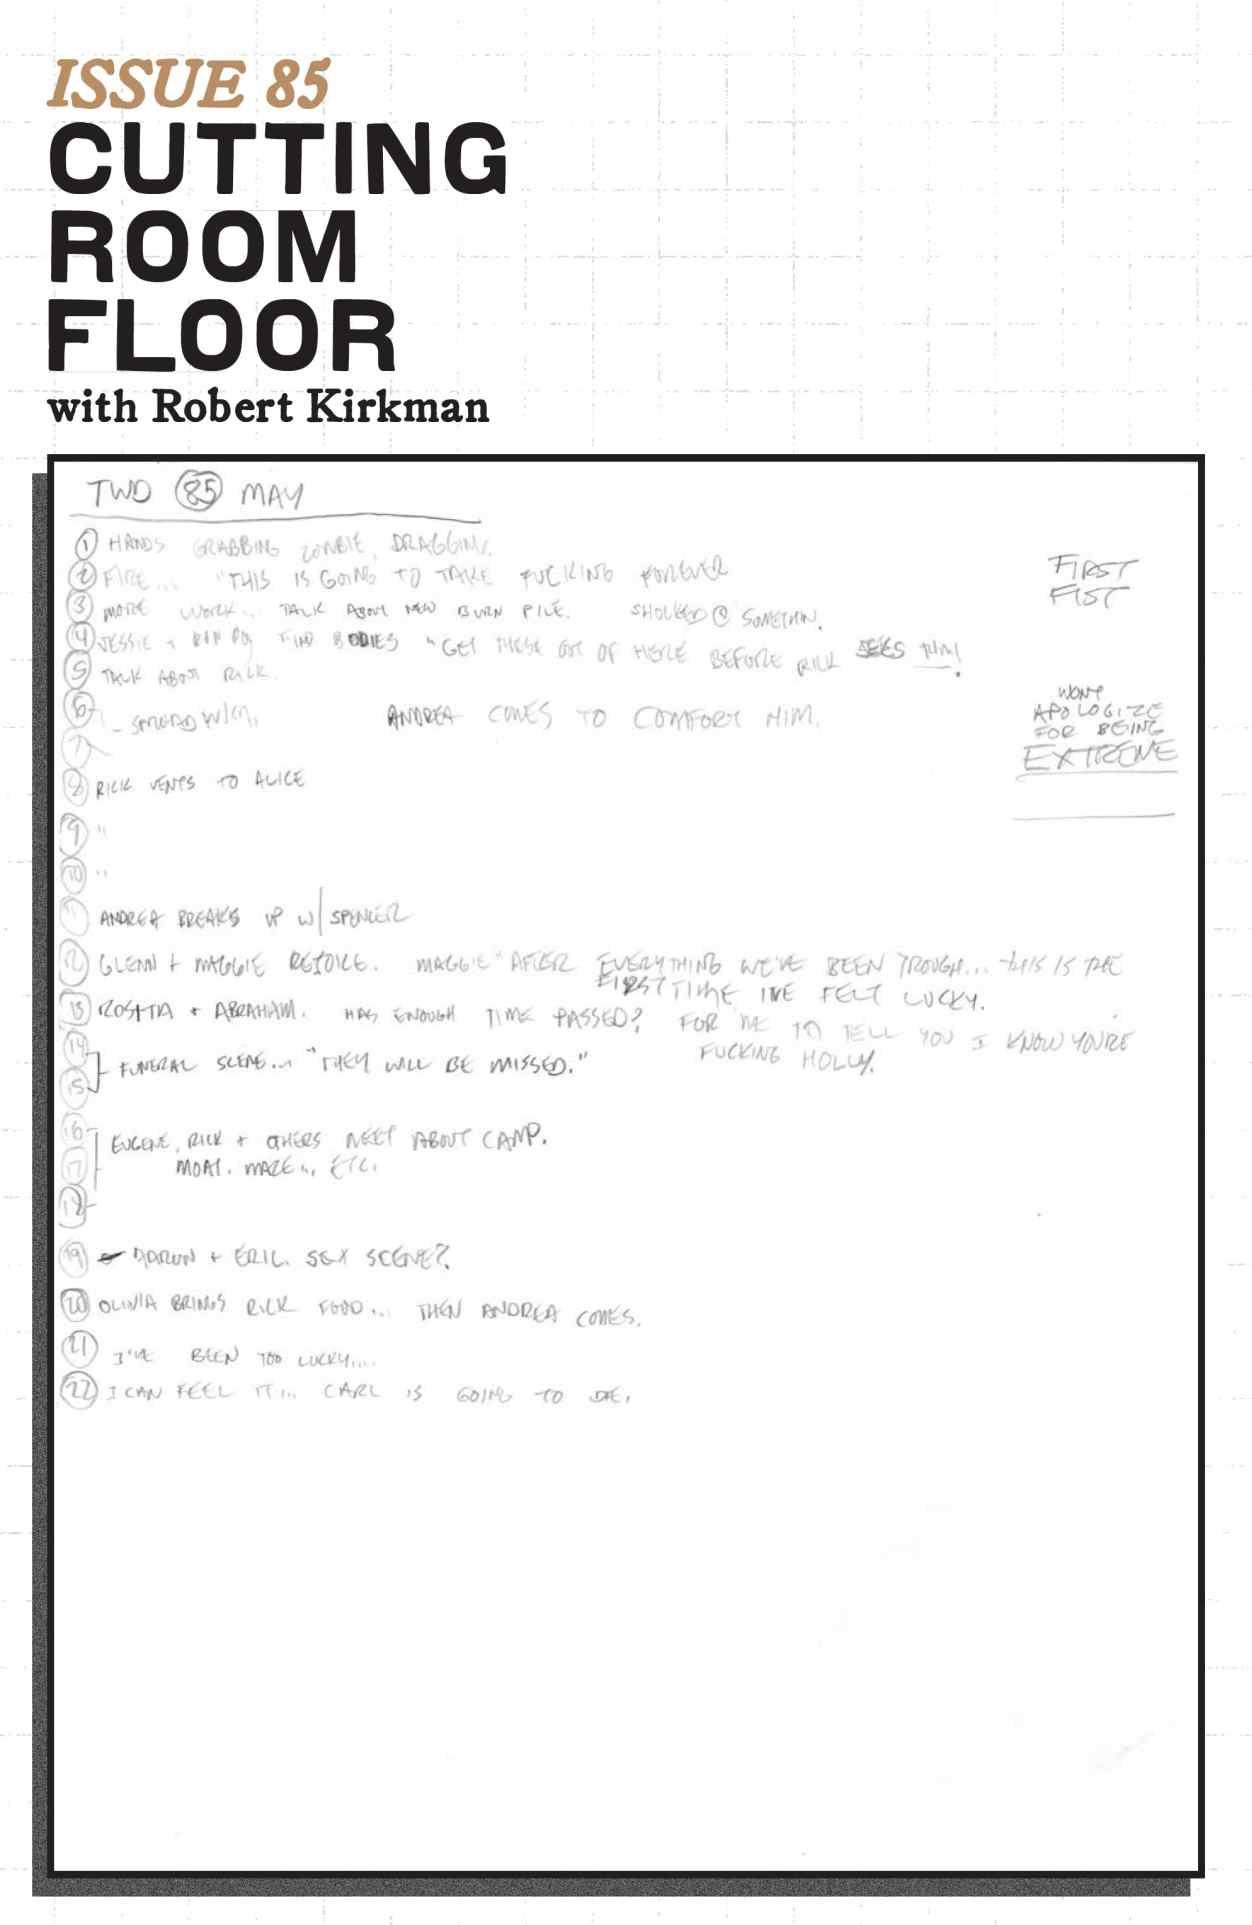 ISSUE 85
CUTTING
ROOM
FLOOR
with Robert Kirkman
TWD 85 MAY
1 HANDS GRABBING ZOMBIE, DRAGGING.
2 FIRE... "THIS IS GOING TO TAKE FUCKING FOREVER
FIRST
FIST
3 MORE WORK... TALK ABOUT NEW BURN PILE. SHOCKED @ SOMETHIN.
4 JESSIE + FIND BODIES "GET THESE OUT OF HERE BEFORE RICK SEES HIM!
5 TALK ABOUT RICK.
6 - ANDREA COMES TO COMFORT HIM.
WONT
APOLOGIZE
FOR BEING
EXTREME
7
8 RICK VENTS TO ALICE
9 "
10 "
11 ANDREA BREAKS UP W/ SPENCER
12 GLENN + MAGGIE REJOICE. MAGGIE "AFTER EVERYTHING WE'VE BEEN TROUGH... THIS IS THE
FIRST TIME I'VE FELT LUCKY.
13 ROSITA + ABRAHAM. HAS ENOUGH TIME PASSED? FOR ME TO TELL YOU I KNOW YOU'RE
FUCKING HOLLY.
14
FUNERAL SCENE... "THEY WILL BE MISSED."
15
16
EUGENE, RICK + OTHERS MEET ABOUT CAMP.
17 MOAT. MAZE... ETC.
18
19 AARON + ERIC. SEX SCENE?
20 OLIVIA BRINGS RICK FOOD... THEN ANDREA COMES.
21 I'VE BEEN TOO LUCKY....
22 I CAN FEEL IT... CARL IS GOING TO DIE.